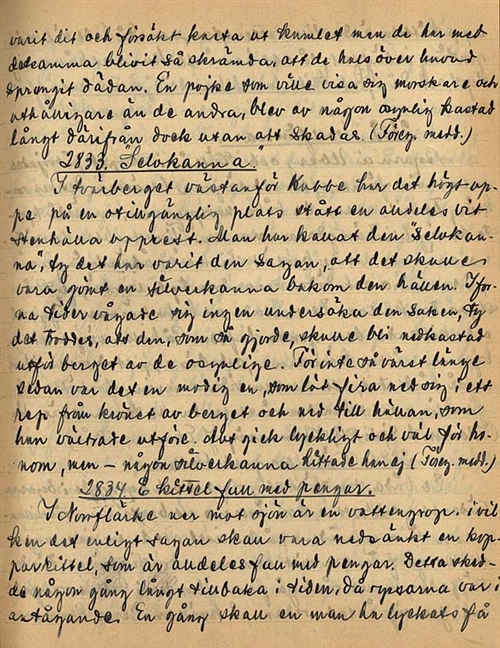 varit dit och försökt kasta ut kumlet men de har med
detsamma blivit så skrämda, att de huls över huvud
sprungit dädan. En pojke som ville visa sig morskare och
uthålligare än de andra, blev av någon osynlig kastad
långt därifrån dock utan att skadas. (Föreg. medd.)
2833. "Selvkanna."
I tvärberget västanför Kubbe har det högt up-
pe på en otillgänglig plats stått en alldeles vit
stenhälla upprest. Man har kallat den "Selvkan-
na", ty det har varit den sagan, att det skulle
vara gömt en silverkanna bakom den hällen. I for-
na tider vågade sig ingen undersöka den saken, ty
det troddes, att den, som så gjorde, skulle bli nedkastad
utför berget av de osynliga. För inte så värst länge
sedan var det en modig en, som lät fira ned sig i ett
rep från krönet av berget och ned till hällan, som
han vältrade utföre. Det gick lyckligt och väl för ho-
nom, men – någon silverkanna hittade han ej (Föreg. medd.)
2834. E kittel full med pengar.
I Norrflärke ner mot sjön är en vattengrop. i vil
ken det enligt sagan skall vara nedsänkt en kop-
parkittel, som är alldeles full med pengar. Detta sked-
de någon gång långt tillbaka i tiden, då ryssarna var i
antågande. En gång skall en man ha lyckats få